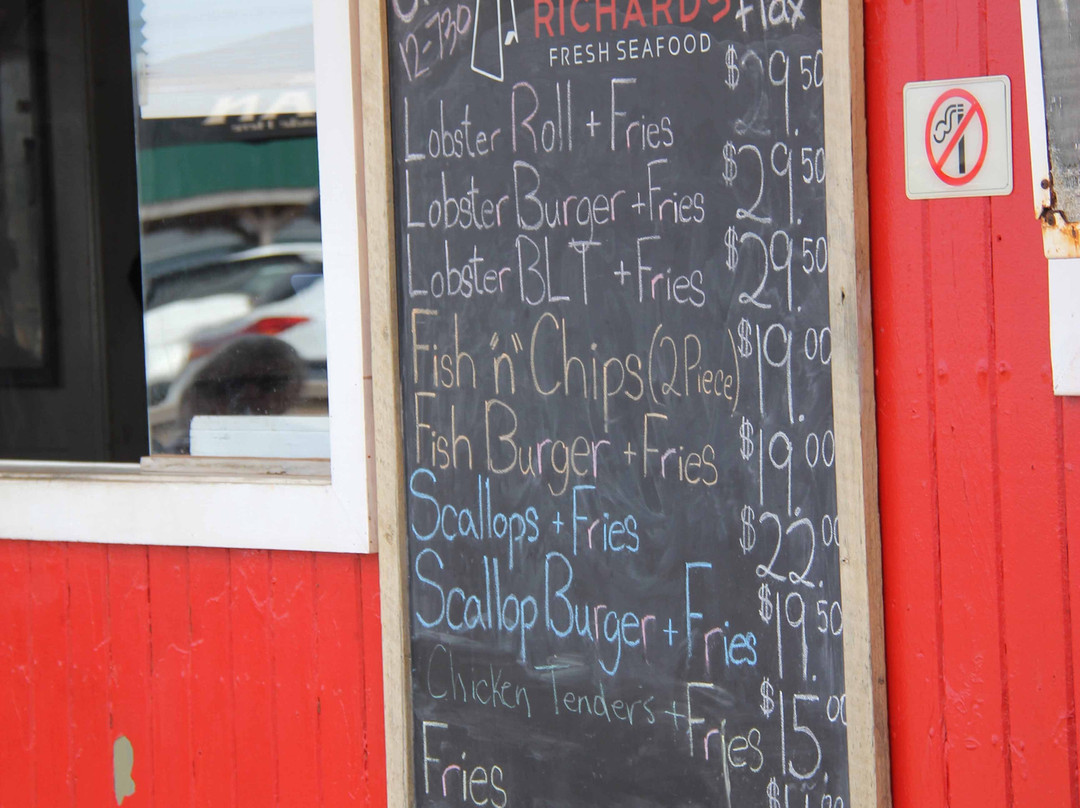 12-730
RICHARDS + Tax
FRESH SEAFOOD
Lobster Roll + Fries $29.50
Lobster Burger + Fries $29.50
Lobster BLT + Fries $29.50
Fish "n" Chips (2 Piece) $19.00
Fish Burger + Fries $19.00
Scallops + Fries $22.00
Scallop Burger + Fries $19.50
Chicken Tenders + Fries $15.00
Fries